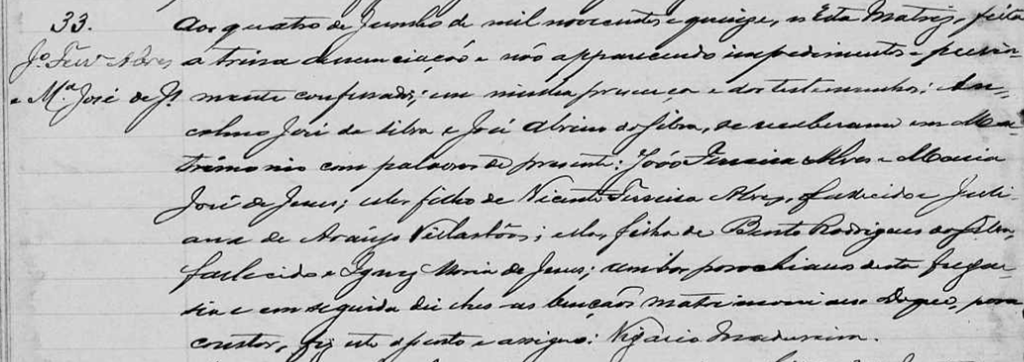 33.
Jº Ferrª Alves
e Mª José de Js
Aos quatro de Junho de mil novecentos e quinze, n'Esta Matriz, feita
a trina denunciação e não apparecendo impedimento e previa-
mente confessados; em minha presença e das testemunhas: An-
selmo José da Silva e José Alves da Silva, se receberam em Ma-
trimonio com palavras de presente: João Ferreira Alves e Maria
José de Jesus; elle, filho de Vicente Ferreira Alves, fallecido e Juli-
ana de Araújo; ella, filha de Bento Rodrigues da Silva,
fallecido e Ignez Maria de Jesus; ambos parochianos desta fregue-
sia e em seguida dei-lhes as bençãos matrimoniaes. Do que, para
constar, fiz este assento e assigno: Vigario Madureira.